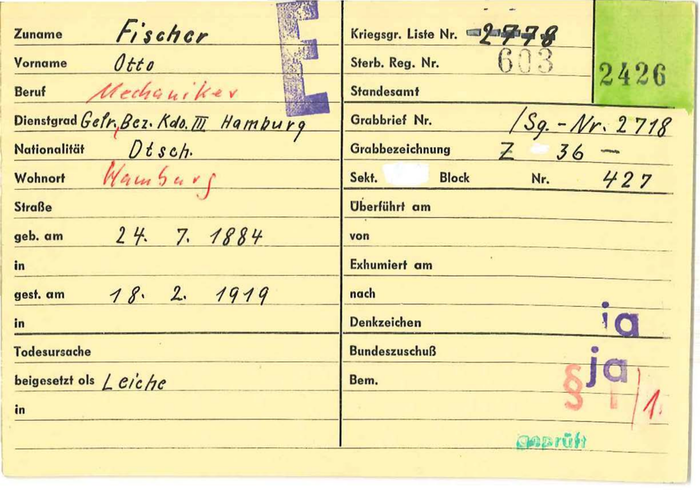 Zuname Fischer
Vorname Otto
Beruf Mechaniker
Dienstgrad Gefr, Bez. Kdo. III Hamburg
Nationalität Dtsch.
Wohnort Hamburg
Straße
geb. am 24. 7. 1884
in
gest. am 18. 2. 1919
in
Todesursache
beigesetzt als Leiche
in
E
Kriegsgr. Liste Nr. 2778
Sterb. Reg. Nr. 603
2426
Standesamt
Grabbrief Nr. /Sg.-Nr. 2718
Grabbezeichnung Z 36 —
Sekt. Block Nr. 427
Überführt am
von
Exhumiert am
nach
Denkzeichen ja
Bundeszuschuß ja
Bem. § 1/1.
geprüft